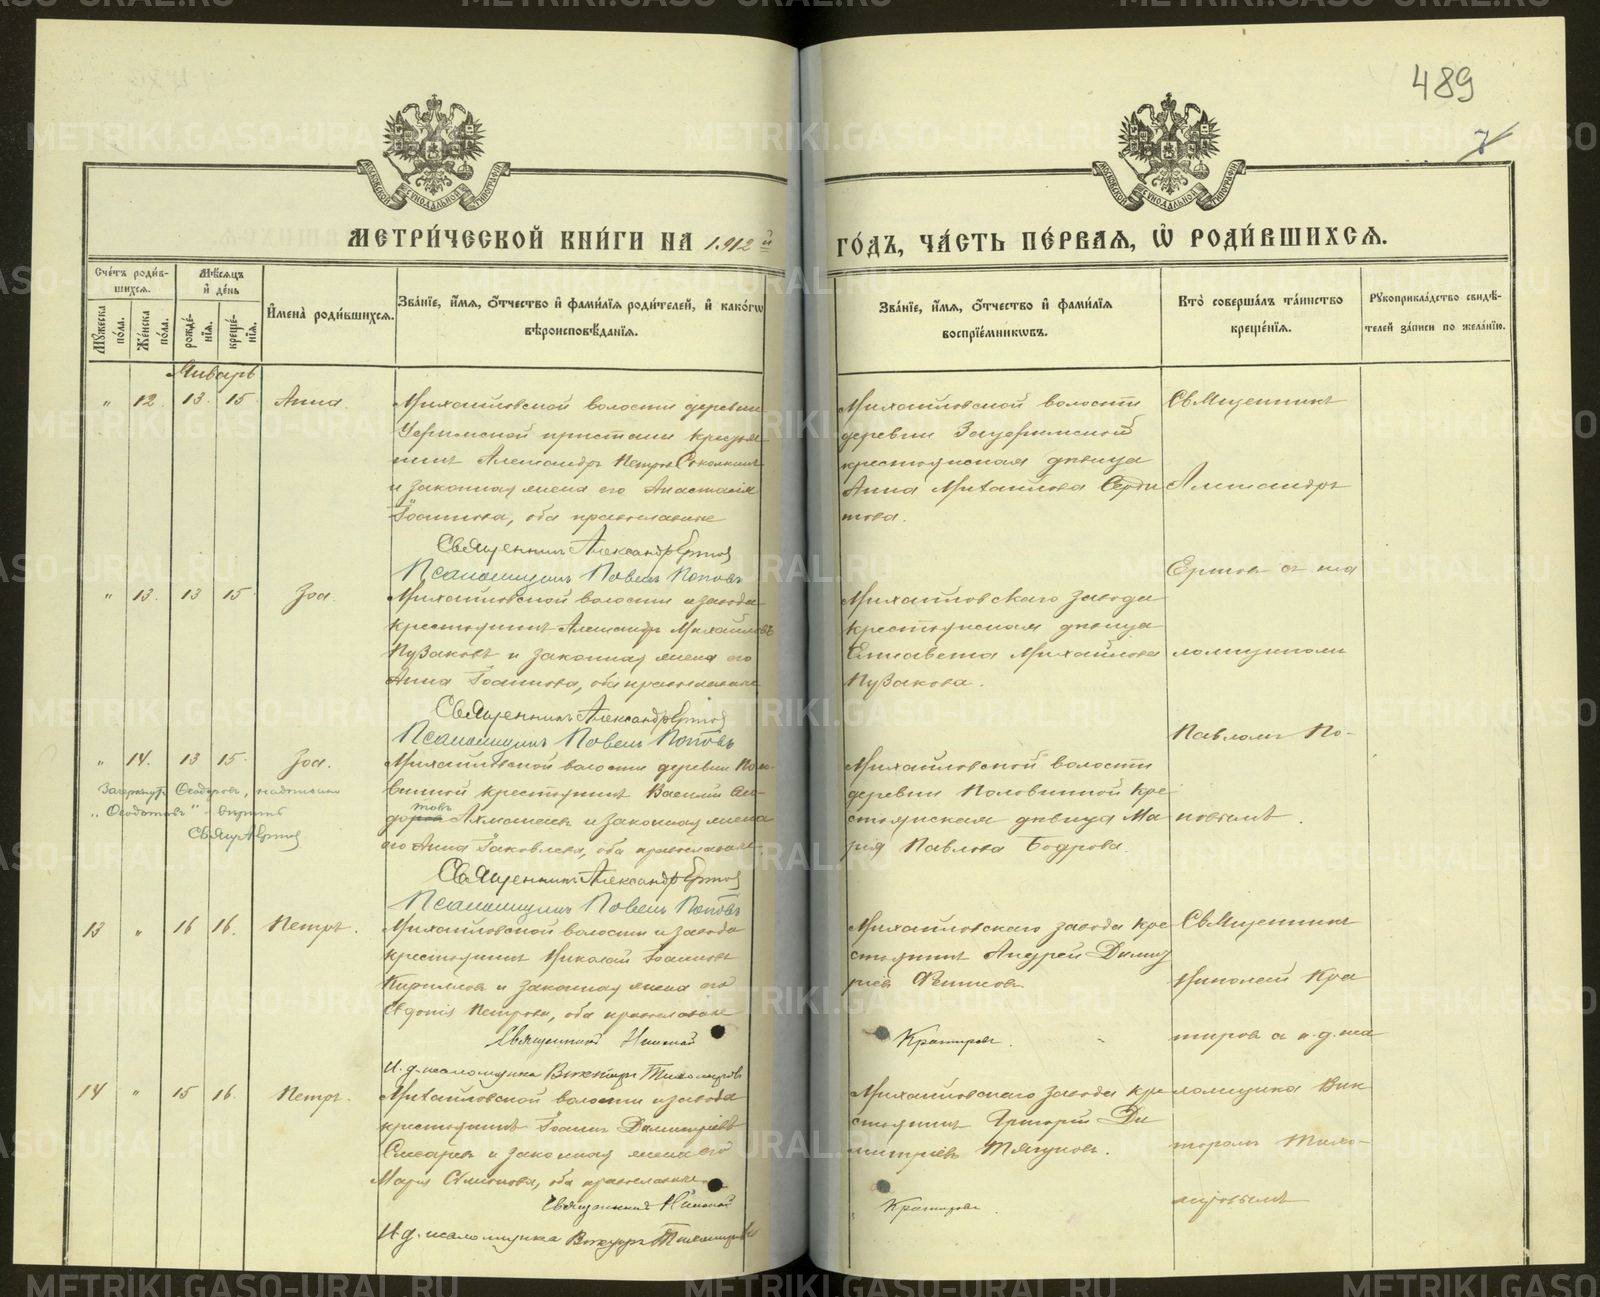 489
7
МОСКОВСКОЙ СУНОДАЛЬНОЙ ТИПОГРАФІИ
МОСКОВСКОЙ СУНОДАЛЬНОЙ ТИПОГРАФІИ
МЕТРИ́ЧЕСКОЙ КНИ́ГИ НА 1912 й
ГО́ДЪ, ЧА́СТЬ ПЕ́РВАЯ, Ѡ҆ РОДИ́ВШИХСЯ.
Сче́тъ роди́в-
шихся.
Мѣ́сяцъ
и҆ де́нь
Му́жеска по́ла.
Же́нска по́ла.
рожде́-нїя.
креще́-нїя.
И҆мена̀ роди́вшихся.
Зва́нїе, и҆́мя, о҆́тчество и҆ фами́лїя роди́телей, и҆ како́гѡ
вѣроисповѣ́данїя.
Зва́нїе, и҆́мя, о҆́тчество и҆ фами́лїя
воспрїе́мниковъ.
Кто̀ соверша́лъ та́инство
креще́нїя.
Рукоприкла́дство свидѣ́-
телей за́писи по жела́нїю.
Январь
" 12. 13. 15. Анна.
Михайловской волости деревни
Уфимской пристани крестья-
нинъ Александръ Петровъ
и законная жена его Анастасія
Іоаннова, оба православные
Священникъ Александръ Ермов
Псаломщикъ Павелъ Поповъ
Михайловской волости
деревни Зауфимской
крестьянская дѣвица
Анна Михайлова Серди
това.
Священникъ
Александръ
Ермов съ пса
ломщикомъ
Павломъ По-
повымъ.
" 13. 13 15. Зоя.
Михайловской волости и завода
крестьянинъ Александръ Михайловъ
Пузаковъ и законная жена его
Анна Іоаннова, оба православные
Священникъ Александръ Ермов
Псаломщикъ Павелъ Поповъ
Михайловскаго завода
крестьянская дѣвица
Елисавета Михайлова
Пузакова.
" 14. 13 15. Зоя.
Михайловской волости деревни Поло-
винной крестьянинъ Василій Ѳео-
доров товъ и законная жена
его Анна Іаковлева, оба православные
Священникъ Александръ Ермов
Псаломщикъ Павелъ Поповъ
Зачеркнуто Ѳеодоровъ, надписано
"Ѳеодотовъ" - вѣрить
Свящ. А Ермов
Михайловской волости
деревни Половинной кре-
стьянская дѣвица Ма-
рія Павлова Бодрова.
13 " 16 16. Петръ.
Михайловской волости и завода
крестьянинъ Николай Іоанновъ
Кирилловъ и законная жена его
Евдокія Петрова, оба православные
Священникъ Николай
И. д. псаломщика Викторъ Тихомировъ
Михайловскаго завода кре
стьянинъ Андрей Димит
ріевъ
Кратировъ.
Священникъ
Николай Кра
тировъ и и. д. пса
ломщика Вик
торомъ Тихо-
мировымъ
14 " 15 16. Петръ.
Михайловской волости и завода
крестьянинъ Іоаннъ Димитріевъ
и законная жена его
Марія Симонова, оба православные
Священникъ Николай
И. д. псаломщика Викторъ Тихомировъ
Михайловскаго завода кре
стьянинъ Григорій Ди
митріевъ Тягуновъ.
Кратировъ.
METRIKI.GASO-URAL.RU